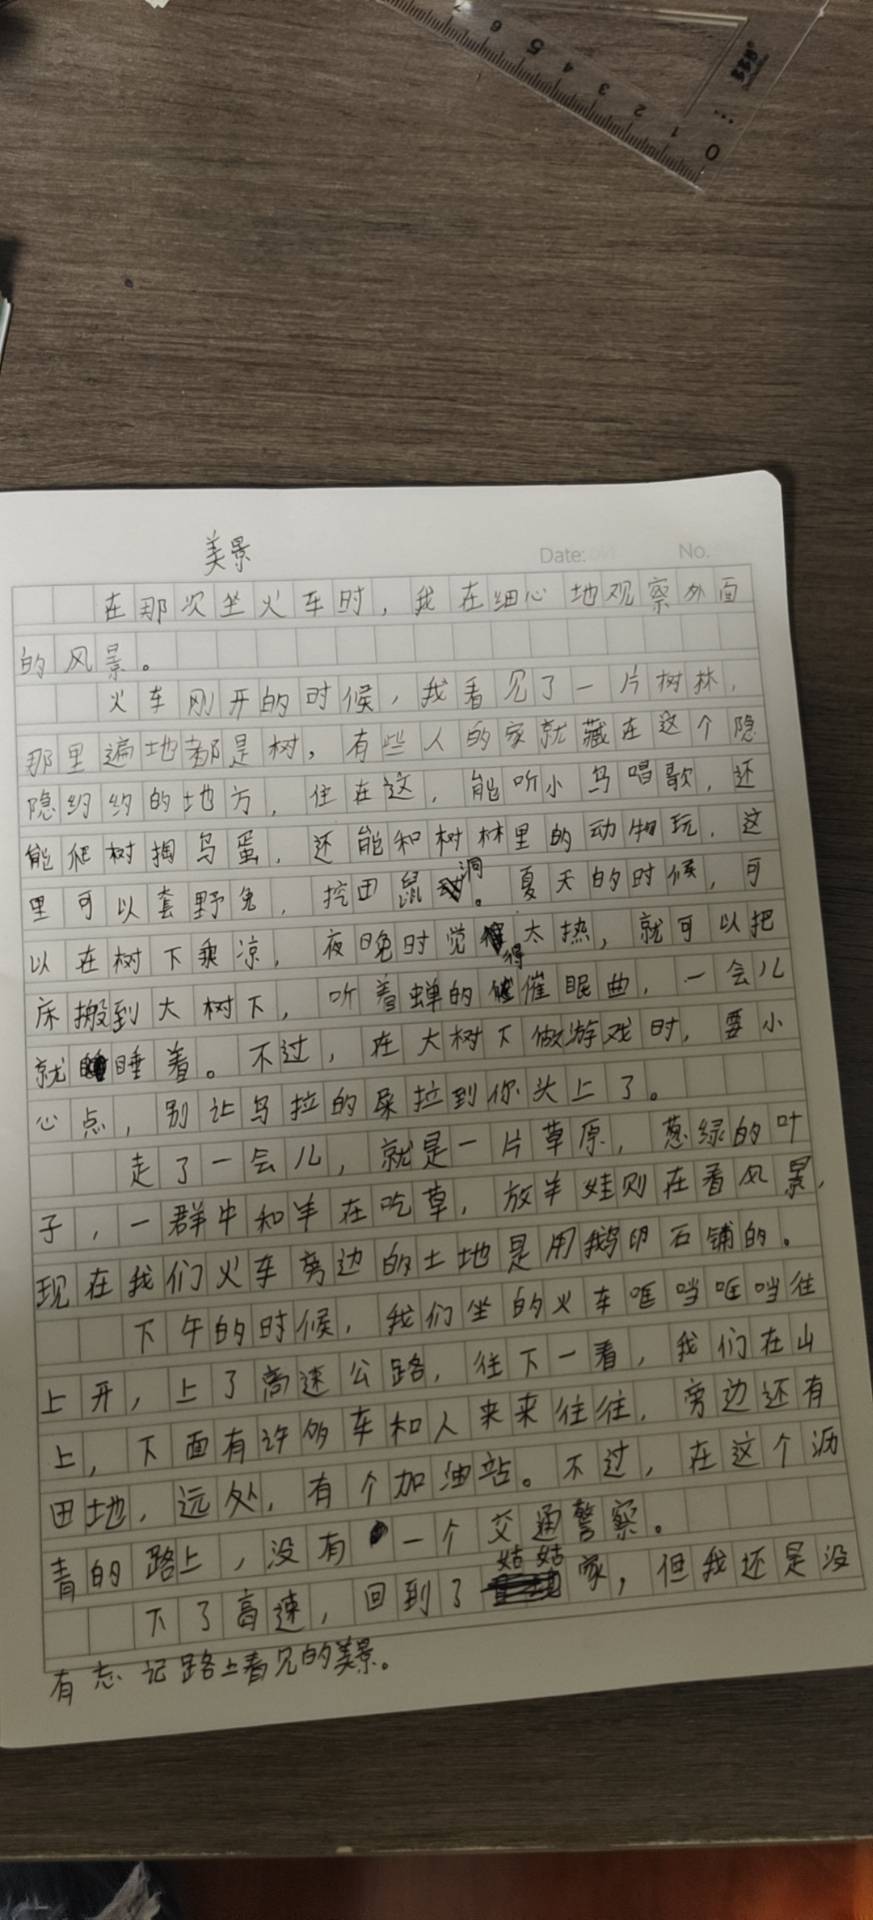 6 5 4 3 2 1 0
美景
Date:
No.
在那次坐火车时，我在细心地观察外面
的风景。
火车刚开的时候，我看见了一片树林，
那里遍地都是树，有些人的家就藏在这个隐
隐约约的地方，住在这，能听小鸟唱歌，还
能爬树掏鸟蛋，还能和树林里的动物玩，这
里可以套野兔，挖田鼠洞。夏天的时候，可
以在树下乘凉，夜晚时觉得太热，就可以把
床搬到大树下，听着蝉的催眠曲，一会儿
就睡着。不过，在大树下做游戏时，要小
心点，别让鸟拉的屎拉到你头上了。
走了一会儿，就是一片草原，葱绿的叶
子，一群牛和羊在吃草，放羊娃则在看风景，
现在我们火车旁边的土地是用鹅卵石铺的。
下午的时候，我们坐的火车哐当哐当往
上开，上了高速公路，往下一看，我们在山
上，下面有许多车和人来来往往，旁边还有
田地，远处，有个加油站。不过，在这个沥
青的路上，没有一个交通警察。
下了高速，回到了姑姑家，但我还是没
有忘记路上看见的美景。